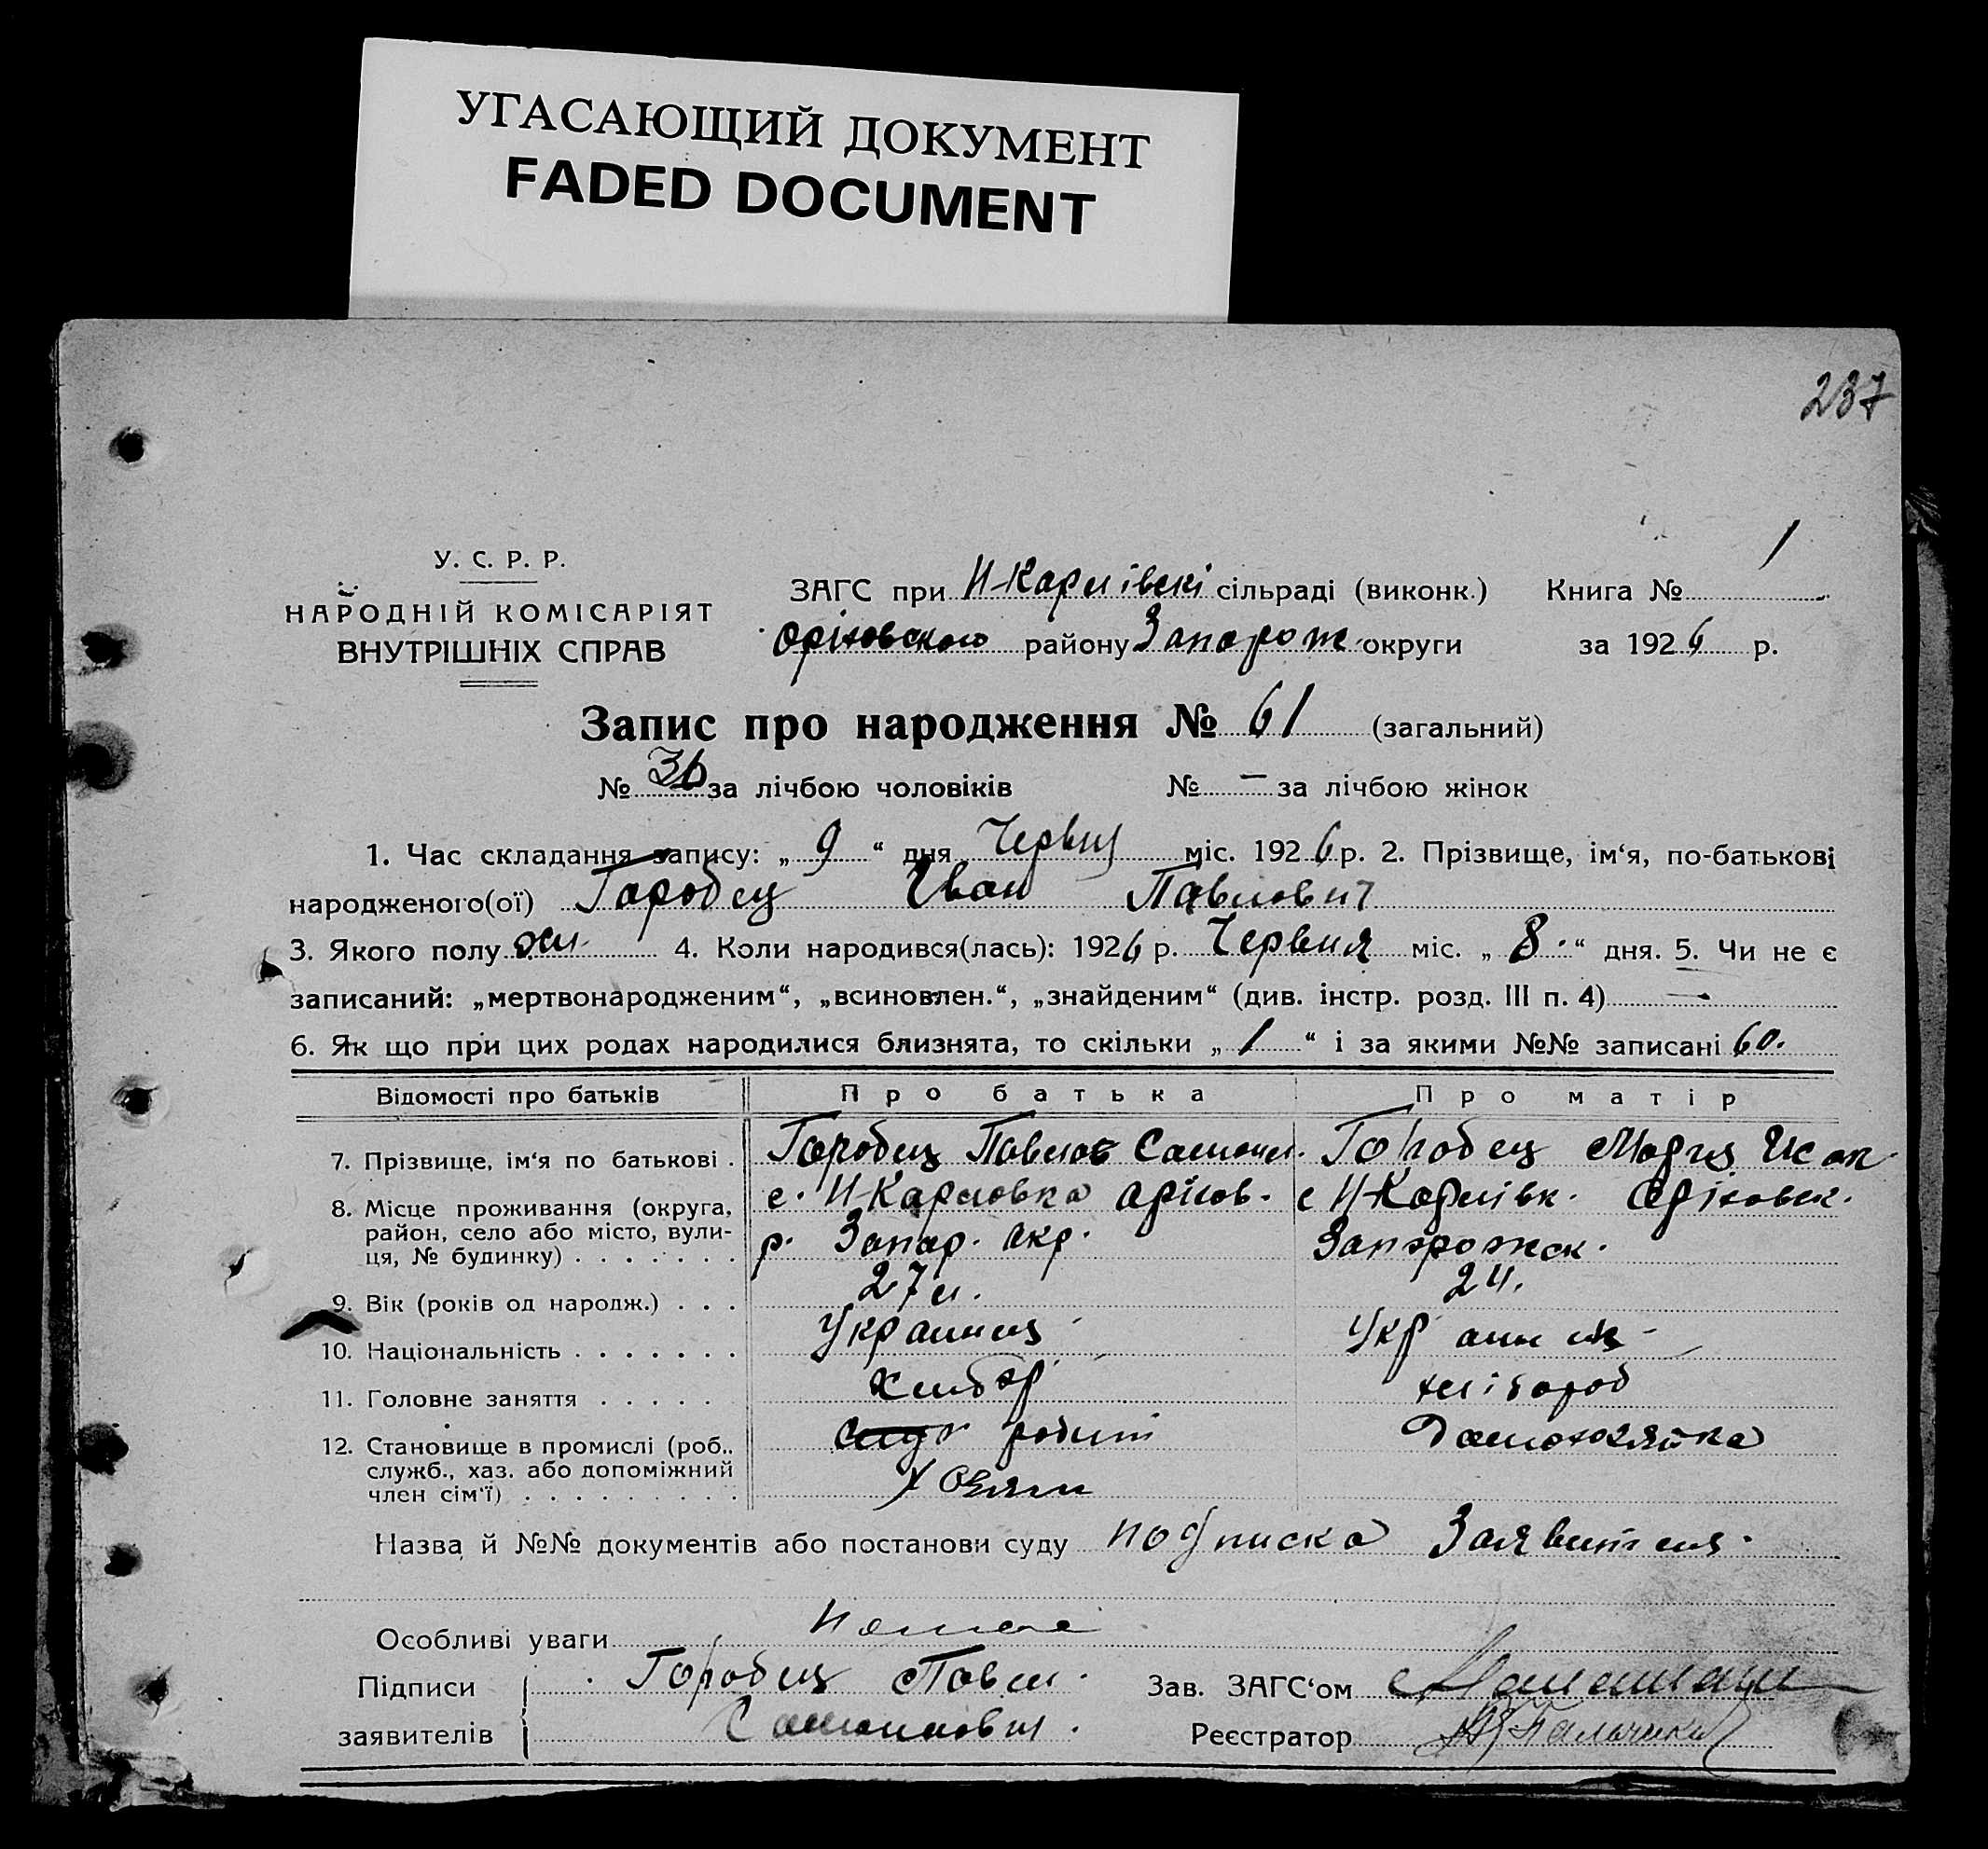 УГАСАЮЩИЙ ДОКУМЕНТ
FADED DOCUMENT
237
У. С. Р. Р.
НАРОДНІЙ КОМІСАРІЯТ
ВНУТРІШНІХ СПРАВ
ЗАГС при Н-Карлівскі сільраді (виконк.) Книга № 1
Оріховского району Запорож округи за 1926 р.
Запис про народження № 61 (загальний)
№ 36 за лічбою чоловіків № — за лічбою жінок
1. Час складання запису: „ 9 “ дня Червня міс. 1926 р. 2. Прізвище, ім‘я, по-батькові
народженого(ої) Горобец Іван Павлович
3. Якого полу 4. Коли народився(лась): 1926 р. Червня міс. „ 8 “ дня. 5. Чи не є
записаний: „мертвонародженим“, „всиновлен.“, „знайденим“ (див. інстр. розд. III п. 4) —
6. Як що при цих родах народилися близнята, то скільки „ 1 “ і за якими №№ записані 60.
Відомості про батьків Про батька Про матір
7. Прізвище, ім‘я по батькові . Горобец Павло Самойл. Горобец Исак.
8. Місце проживання (округа, с. Н-Карловка Оріхов. с Н-Карлівк. Оріховск.
район, село або місто, вули-
ця, № будинку) . . . . . . . р. Запор. окр. Запорожск.
9. Вік (років од народж.) . . . 27 л. 24.
10. Національність . . . . . . . Украинец Украинц
11. Головне заняття . . . . . Хлибор хлібороб
12. Становище в промислі (роб., робит Домохозяйка
служб., хаз. або допоміжний
член сім‘ї) . . . . . . . . . Хозяин
Назва й №№ документів або постанови суду подписка Заявителя.
Особливі уваги Немае
Підписи Горобец Павел Зав. ЗАГС‘ом
заявителів Реєстратор